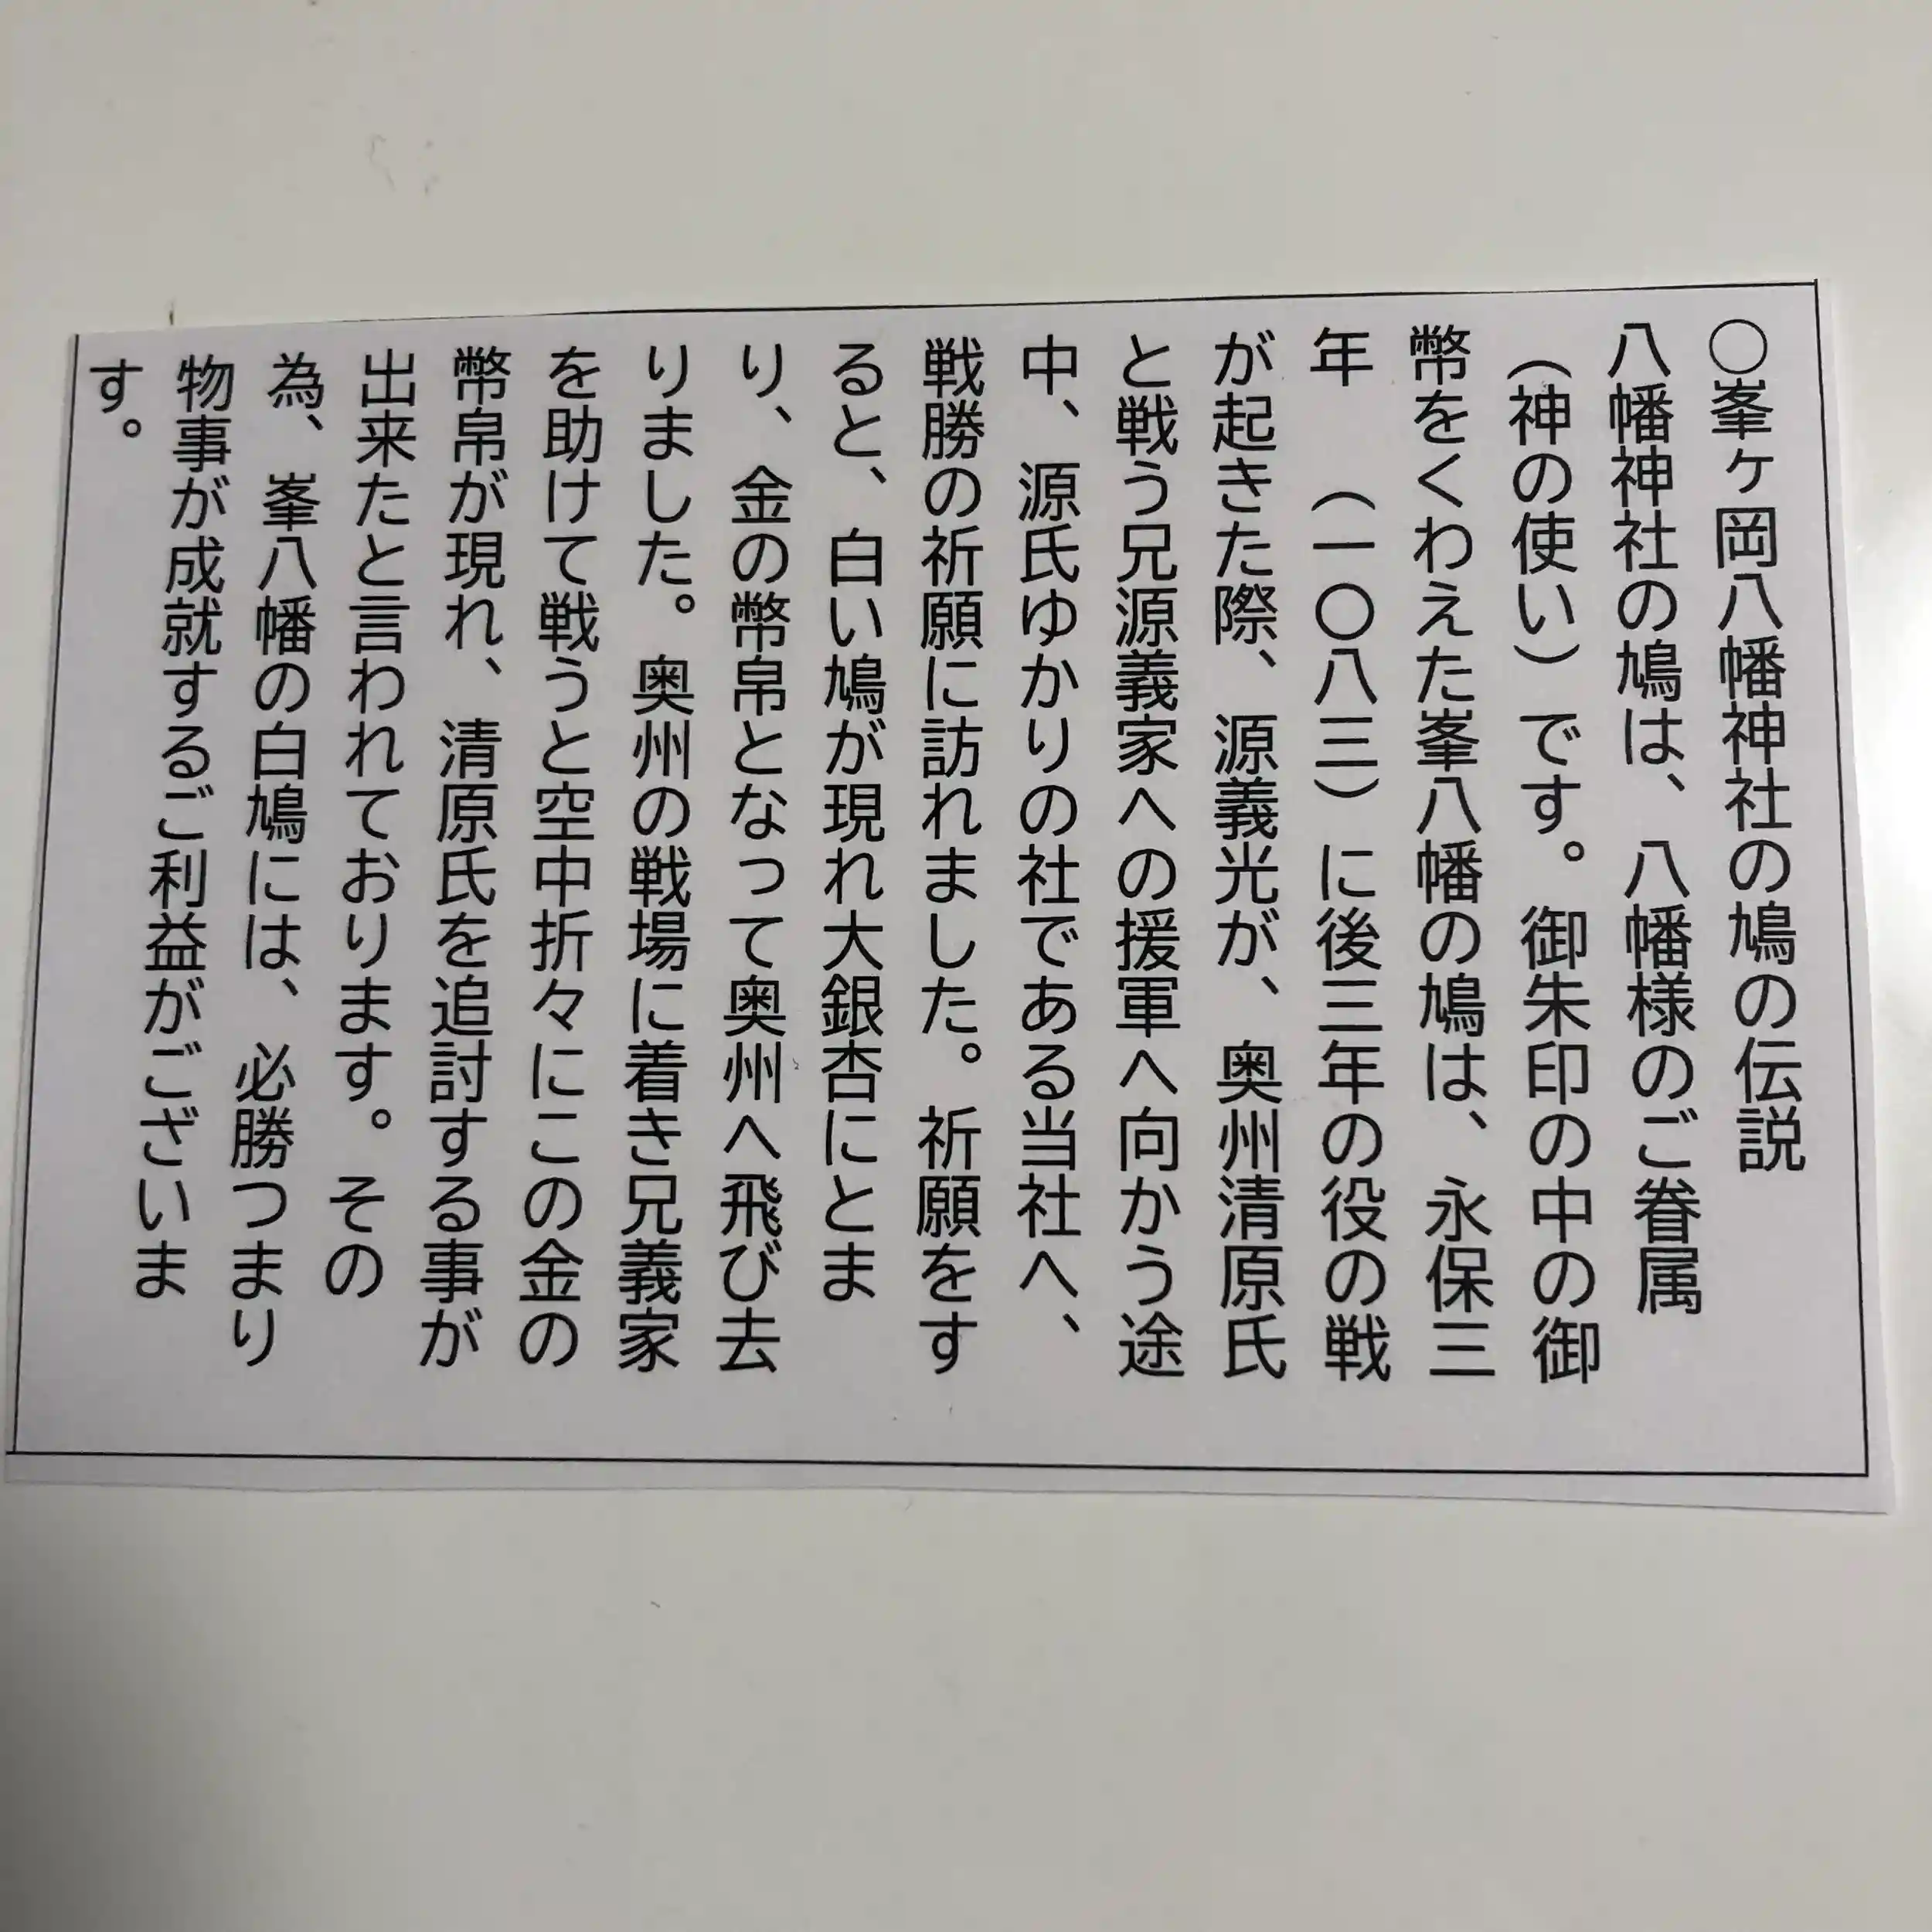 ○峯ヶ岡八幡神社の鳩の伝説
八幡神社の鳩は、八幡様のご眷属
（神の使い）です。御朱印の中の御
幣をくわえた峯八幡の鳩は、永保三
年　（一〇八三）に後三年の役の戦
が起きた際、源義光が、奥州清原氏
と戦う兄源義家への援軍へ向かう途
中、源氏ゆかりの社である当社へ、
戦勝の祈願に訪れました。祈願をす
ると、白い鳩が現れ大銀杏にとま
り、金の幣帛となって奥州へ飛び去
りました。奥州の戦場に着き兄義家
を助けて戦うと空中折々にこの金の
幣帛が現れ、清原氏を追討する事が
出来たと言われております。その
為、峯八幡の白鳩には、必勝つまり
物事が成就するご利益がございま
す。